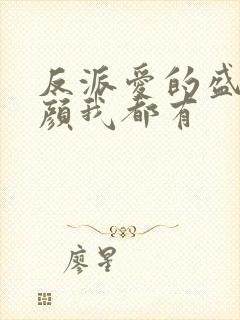 反派愛的盛
顏我都有
廖星